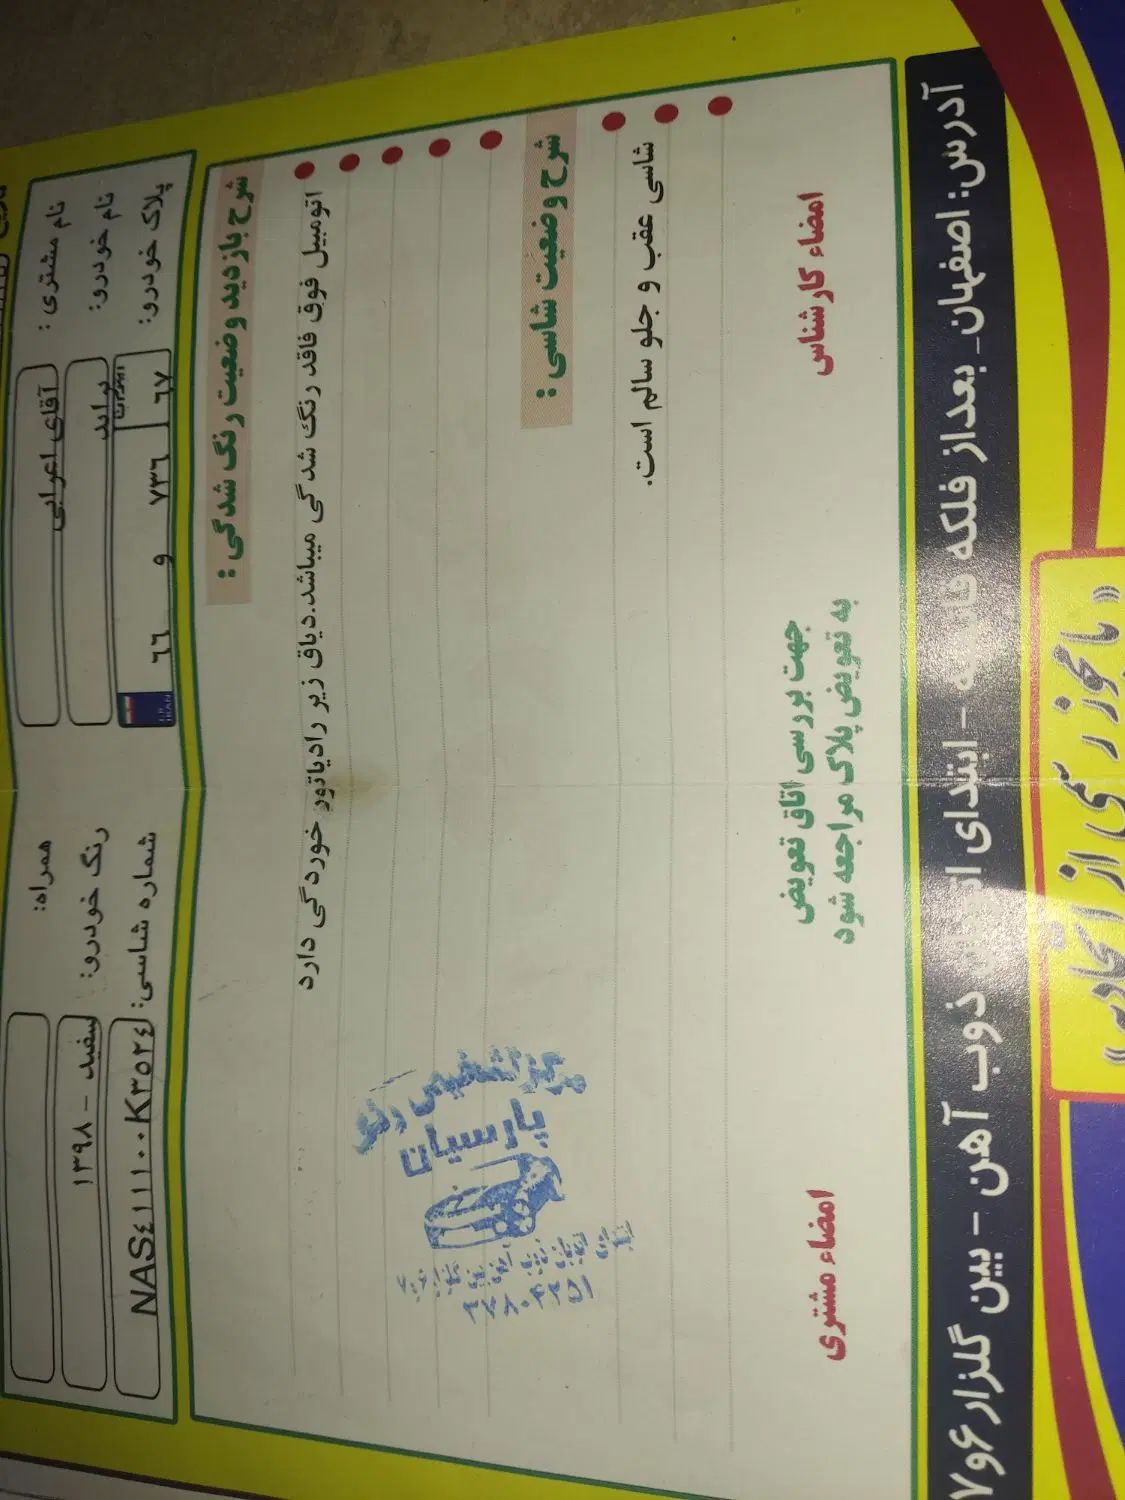 نام مشتری : آقای اعرابی
همراه:
نام خودرو: پراید
رنگ خودرو: سفید - ۱۳۹۸
پلاک خودرو: ٦٧ ٧٣٦ و ٦٦
I.R. IRAN
شماره شاسی: NAS٤١١١٠٠K٣٥٢٤
شرح بازدید وضعیت رنگ شدگی :
اتومبیل فوق فاقد رنگ شدگی میباشد.دیاق زیر رادیاتور خوردگی دارد
شرح وضعیت شاسی :
شاسی عقب و جلو سالم است.
مرکز تشخیص رنگ
پارسیان
امضاء کارشناس
جهت بررسی اتاق تعویض
به تعویض پلاک مراجعه شود
امضاء مشتری
آدرس: اصفهان_ بعداز فلکه - ابتدای ذوب آهن - بین گلزار ۶و۷
«با مجوز رسمی از اتحادیه»